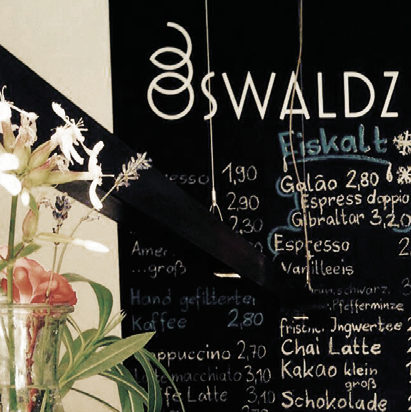 OSWALDZ
Eiskalt
1,90
2,90
2,30
Ame
...groß
Hand gefilterter
Kaffee 2,80
appuccino 2,70
macchiato 3,10
Latte 3,10
Galão 2,80
Espress doppio
Gibraltar 3,20
Espresso 2
Vanilleeis
schwarz.
Pfefferminze
frisch. Ingwertee
Chai Latte
Kakao klein
groß
Schokolade